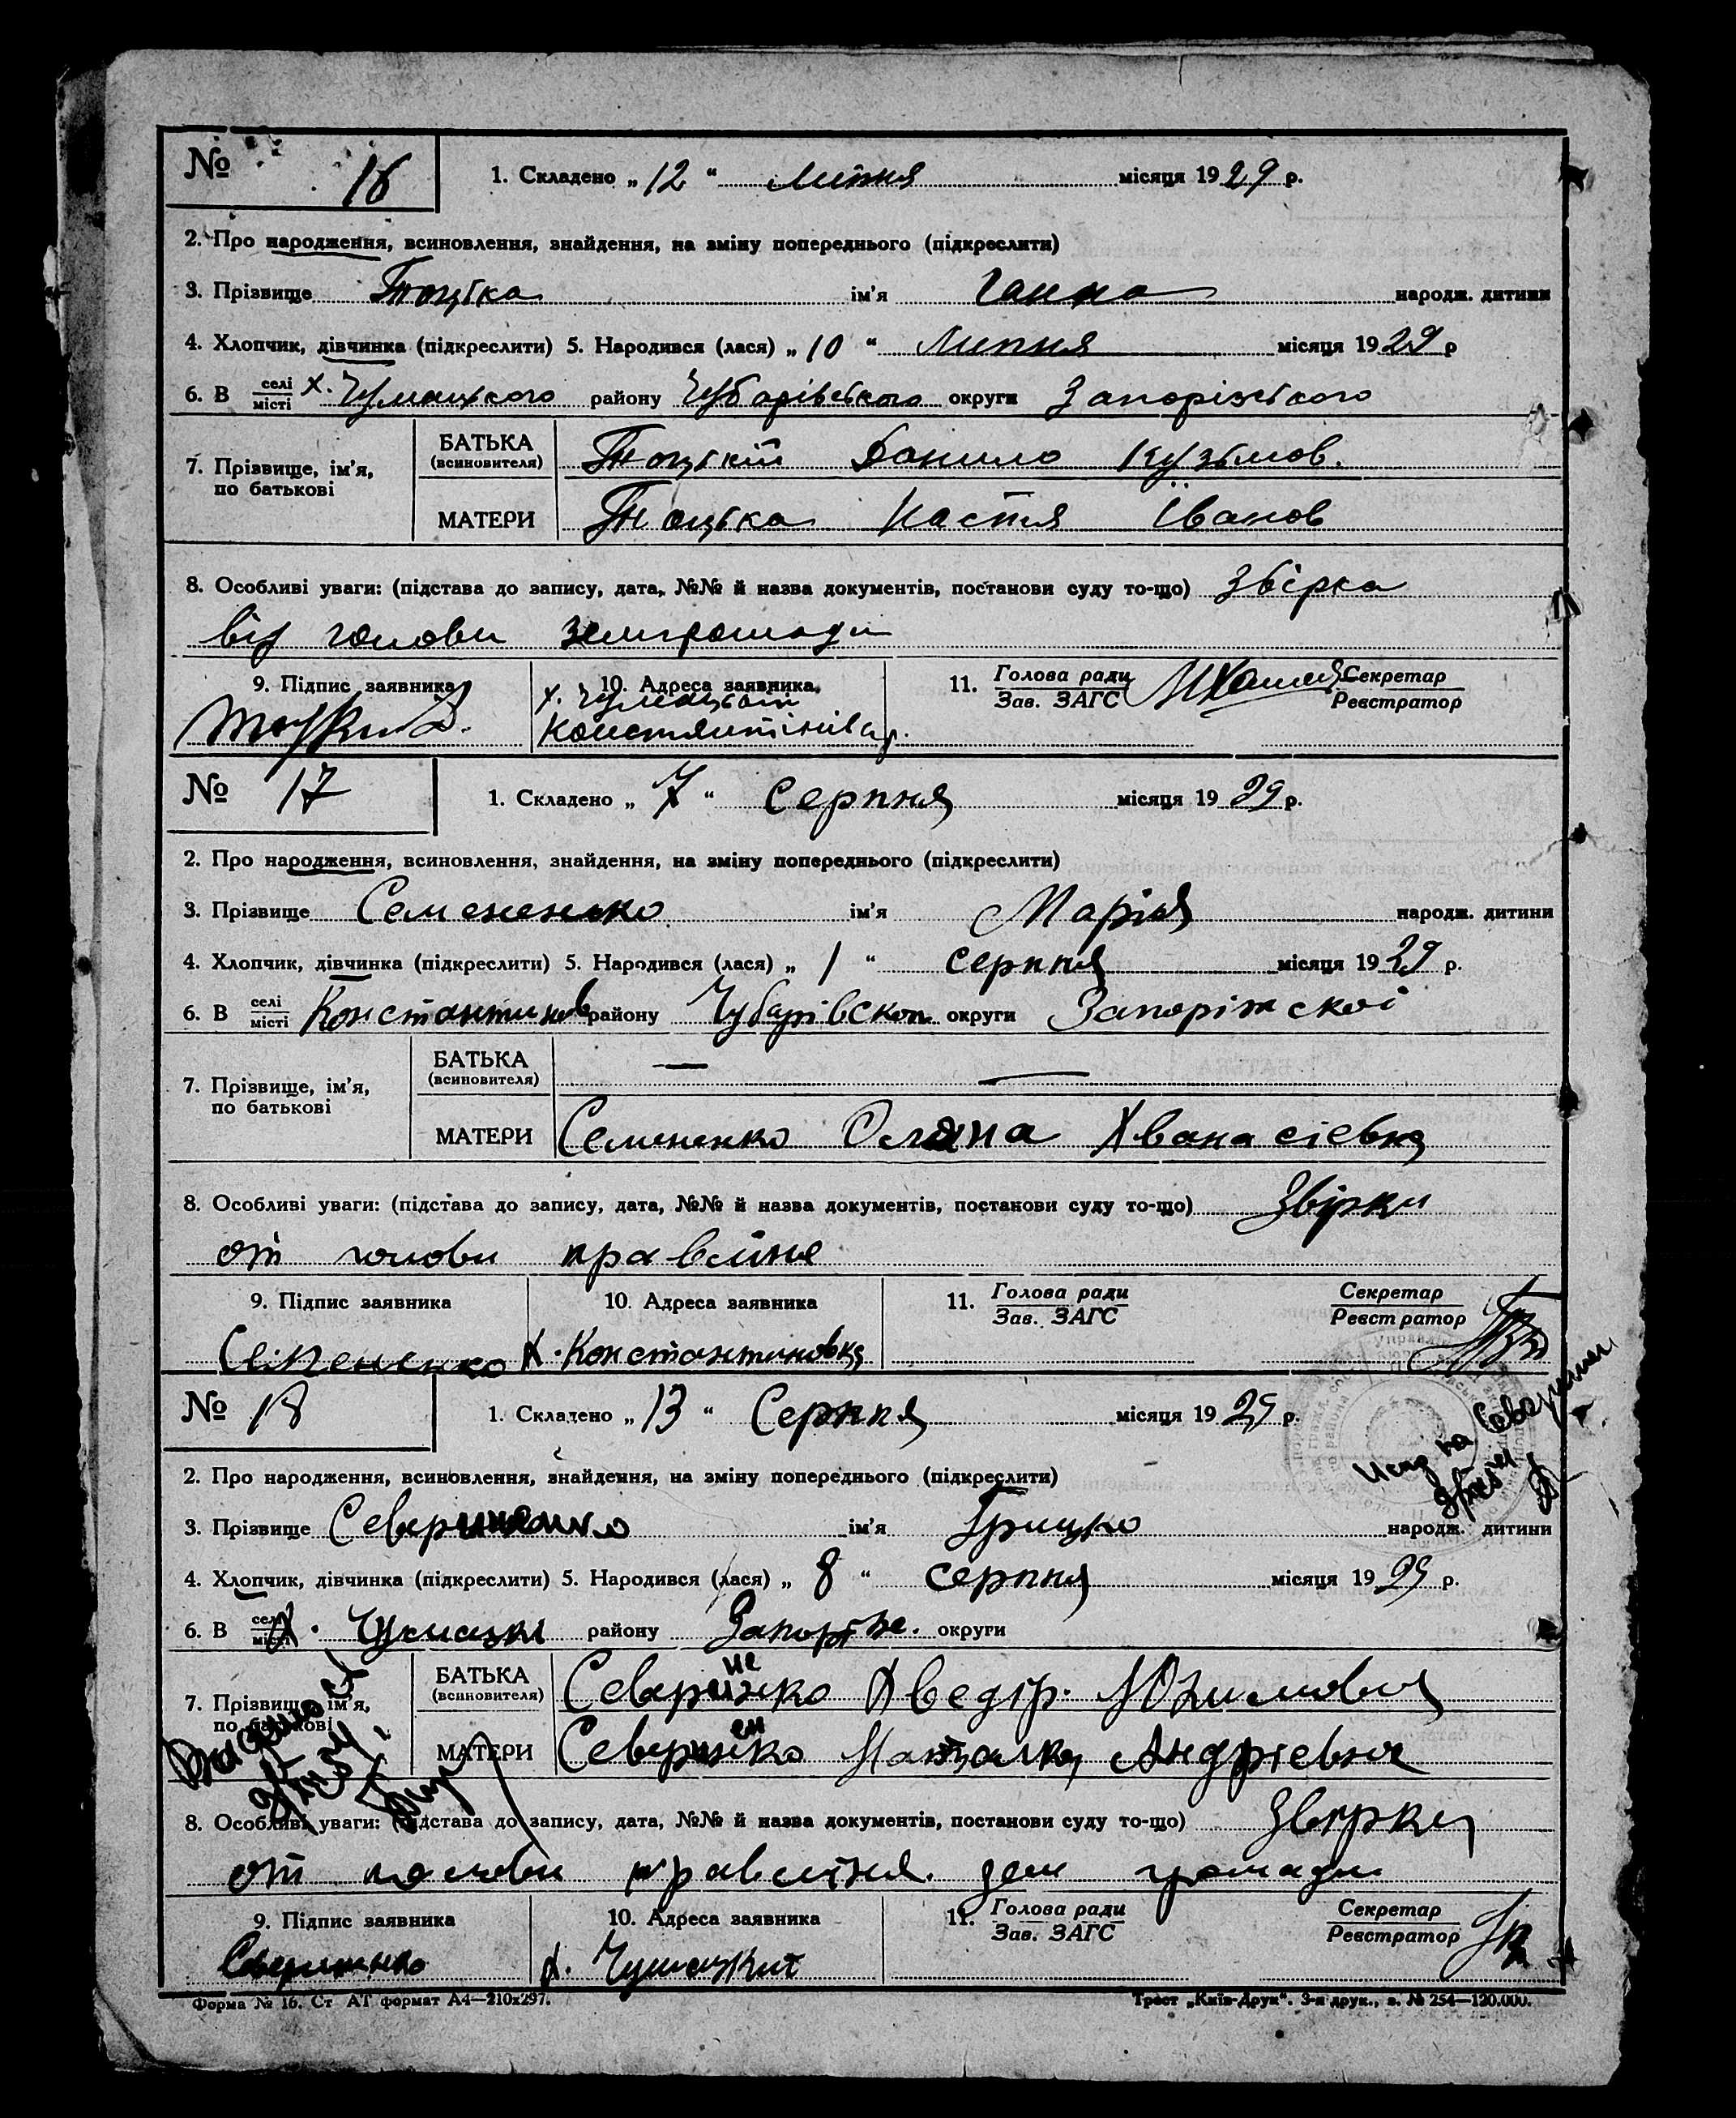 № 16 1. Складено „12“ липня місяця 1929 р.
2. Про народження, всиновлення, знайдення, на зміну попереднього (підкреслити)
3. Прізвище Тоцька ім'я Ганна народж. дитини
4. Хлопчик, дівчинка (підкреслити) 5. Народився (лася) „10“ Липня місяця 1929 р
6. В селі/місті х. Чумацького району Чубарівського округи Запорізського
7. Прізвище, ім'я, по батькові
БАТЬКА (всиновителя) Тоцькій Данило Кузьмов.
МАТЕРИ Тоцька Настя Іванов
8. Особливі уваги: (підстава до запису, дата, №№ й назва документів, постанови суду то-що) Звірка
від голови земгромади
9. Підпис заявника 10. Адреса заявника 11. Голова ради Зав. ЗАГС Секретар Реєстратор
х. Чумацький
№ 17 1. Складено „7“ Серпня місяця 1929 р.
2. Про народження, всиновлення, знайдення, на зміну попереднього (підкреслити)
3. Прізвище Семененко ім'я Марія народж. дитини
4. Хлопчик, дівчинка (підкреслити) 5. Народився (лася) „1“ серпня місяця 1929 р.
6. В селі/місті Константинов району Чубарівскои округи Запоріжскої
7. Прізвище, ім'я, по батькові
БАТЬКА (всиновителя) — —
МАТЕРИ Семененко Оляна Хванасієвна
8. Особливі уваги: (підстава до запису, дата, №№ й назва документів, постанови суду то-що) Звірки
от голови правліня
9. Підпис заявника 10. Адреса заявника 11. Голова ради Зав. ЗАГС Секретар Реєстратор
Семененко х. Константиновка
№ 18 1. Складено „13“ Серпня місяця 1929 р.
2. Про народження, всиновлення, знайдення, на зміну попереднього (підкреслити)
3. Прізвище Северинко ім'я Грицко народж. дитини
4. Хлопчик, дівчинка (підкреслити) 5. Народився (лася) „8“ серпня місяця 1929 р.
6. В селі/місті х. Чумацкі району Запоріже. округи
7. Прізвище, ім'я, по батькові
БАТЬКА (всиновителя) Северіненко Хведір Юхимович
МАТЕРИ Севериненко Наталка Андрієвна
8. Особливі уваги: (підстава до запису, дата, №№ й назва документів, постанови суду то-що) Звірки
от голови правліня. зем громади
9. Підпис заявника 10. Адреса заявника 11. Голова ради Зав. ЗАГС Секретар Реєстратор
х. Чумацкий
Форма № 16. Ст АТ формат А4—210х297. Трест „Київ-Друк“. 3-я друк., з. № 254—120.000.